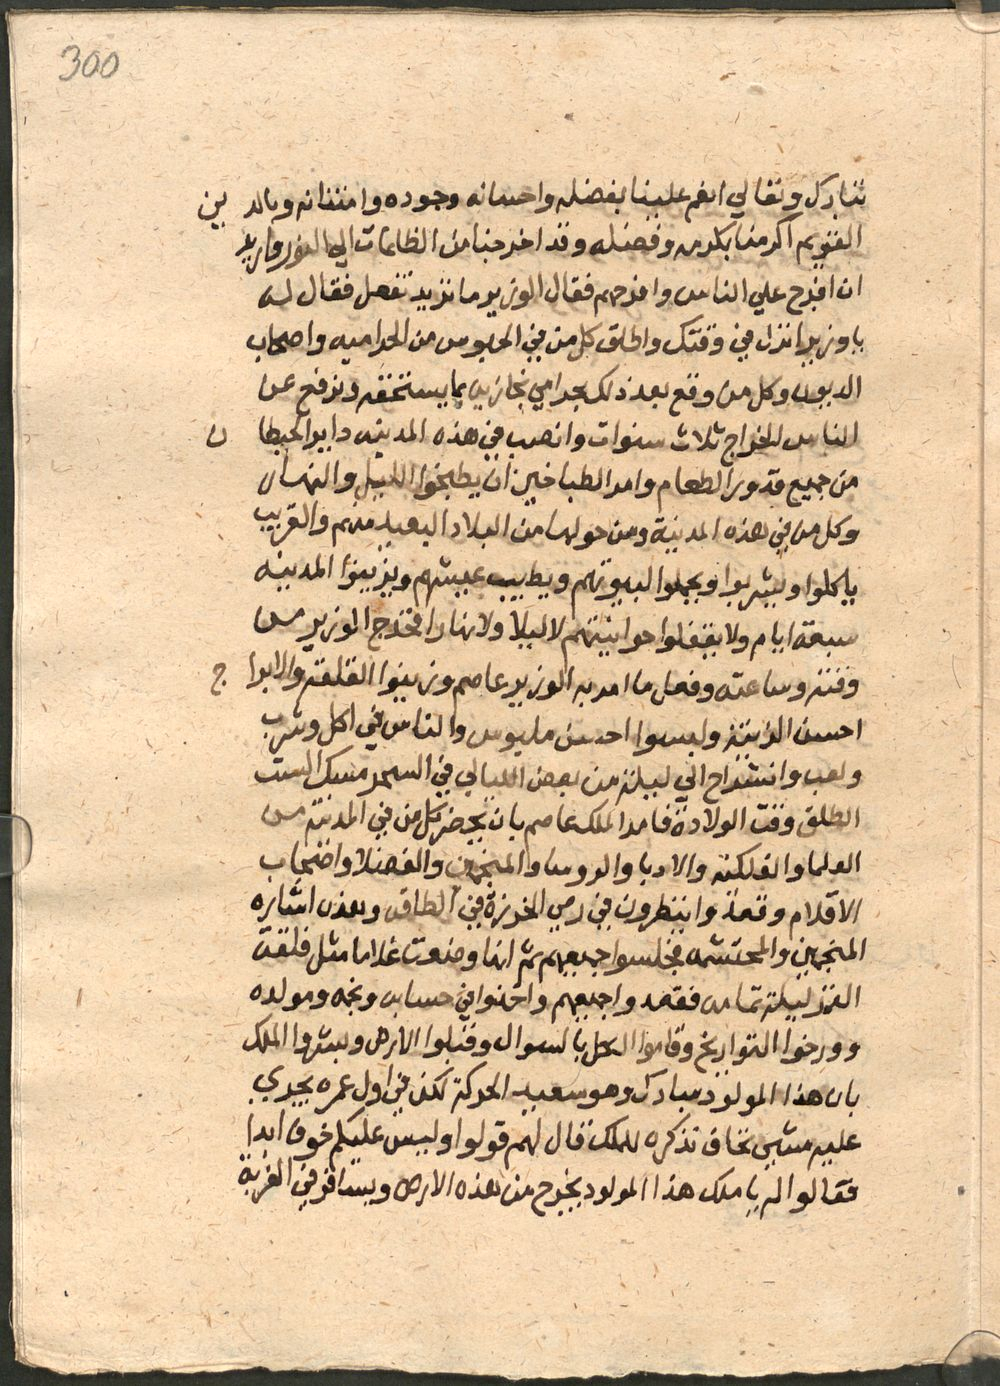 300
تبارك وتعالي انعم علينا بفضله واحسانه وجوده وامتنانه وبالدين
القويم اكرمنا بكرمه وفضله وقد اخرجنا من الظلمات الي النور واريد
ان افرح علي الناس وافرحهم فقال الوزير ما تريد تفعل فقال له
يا وزير انزل في وقتك واطلق كل من في الحبوس من الحراميه واصحاب
الديون وكل من وقع بعد ذلك بجرامي نجازيه بما يستحقه ونرفع عن
الناس الخراج ثلاث سنوات وانصب في هذه المدينه داير الحيطان
من جميع قدور الطعام وامر الطباخين ان يطبخوا الليل والنهار
وكل من في هذه المدينة ومن حولها من البلاد البعيد منهم والقريب
ياكلوا ويشربوا ويحملوا لبيوتهم ويطيب عيشهم ويزينوا المدينه
سبعة ايام ولا يقفلوا حوانيتهم لا ليلا ولا نهارا فخرج الوزير من
وقته وساعته وفعل ما امر به الوزير عاصم وزينوا القلعة والابراج
احسن الزينة ولبسوا احسن ملبوس والناس في اكل وشرب
ولعب وانشراح الي ليلة من بعض الليالي في السحر مسك الست
الطلق وقت الولادة فامر الملك عاصم بان يحضر كل من في المدينة من
العلما والفلكنه والادبا والروسا والمنجمين والفضلا واصحاب
الاقلام وقعدوا ينتظرون في رمي الخرزة في الطاقه وهذه اشارة
المنجمين والمحتشمه فجلسوا جميعهم ثم انها وضعت غلاما مثل فلقة
القمر ليلة تمامه فقعدوا جميعهم واخذوا في حسابه ونجمه ومولده
وورخوا التواريخ وقاموا الكل بالسوال وقبلوا الارض وبشروا الملك
بان هذا المولود مبارك وهو سعيد الحركة لكن في اول عمره يجري
عليه شي نخاف نذكره للملك قال لهم قولوا وليس عليكم خوف ابدا
فقالوا له يا ملك هذا المولود يخرج من هذه الارض ويسافر في الغربة